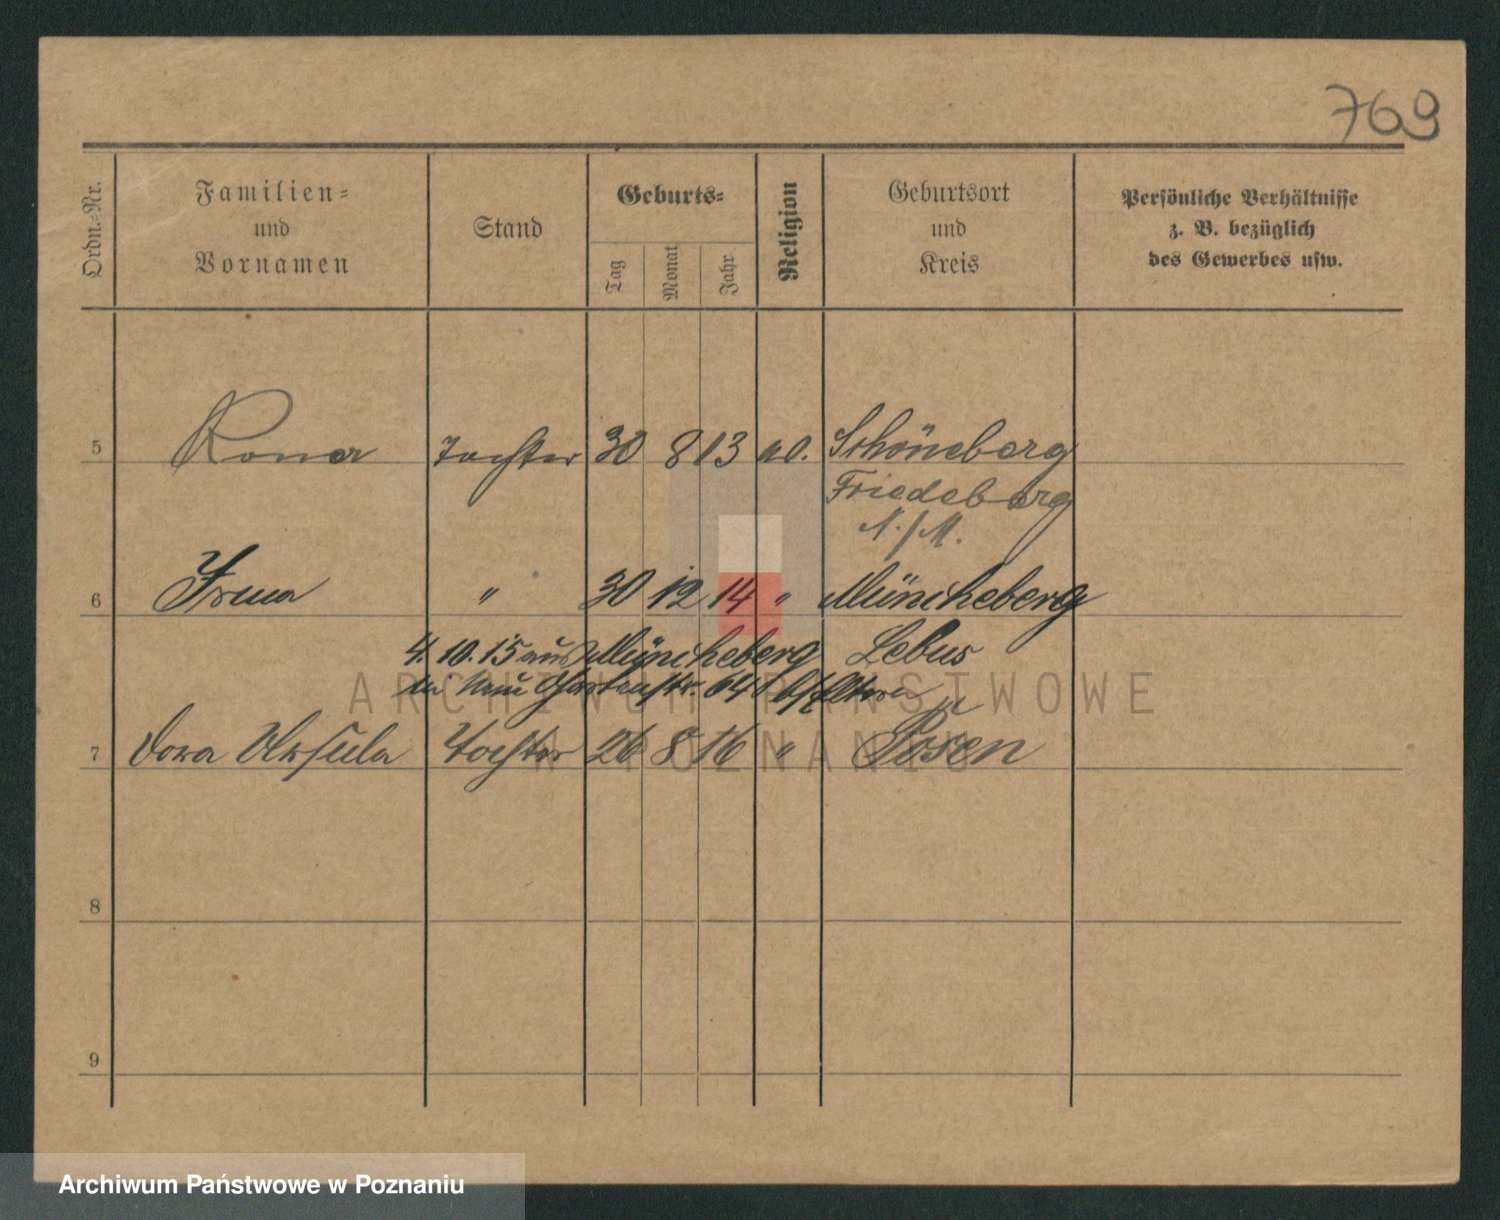 769
Ordn.-Nr.
Familien-
und
Vornamen
Stand
Geburts-
Tag
Monat
Jahr
Religion
Geburtsort
und
Kreis
Persönliche Verhältnisse
z. B. bezüglich
des Gewerbes usw.
5 Tochter 30 8 13 Schöneberg
Friedeberg
N./M.
6 Irma " 30 12 14 " Müncheberg
4. 10. 15 aus Müncheberg Lebus
Neue Gartenstr. 64 b/Eltern
7 Dora Ursula Tochter 26 8 16 " Posen
8
9
ARCHIWUM PAŃSTWOWE
W POZNANIU
Archiwum Państwowe w Poznaniu